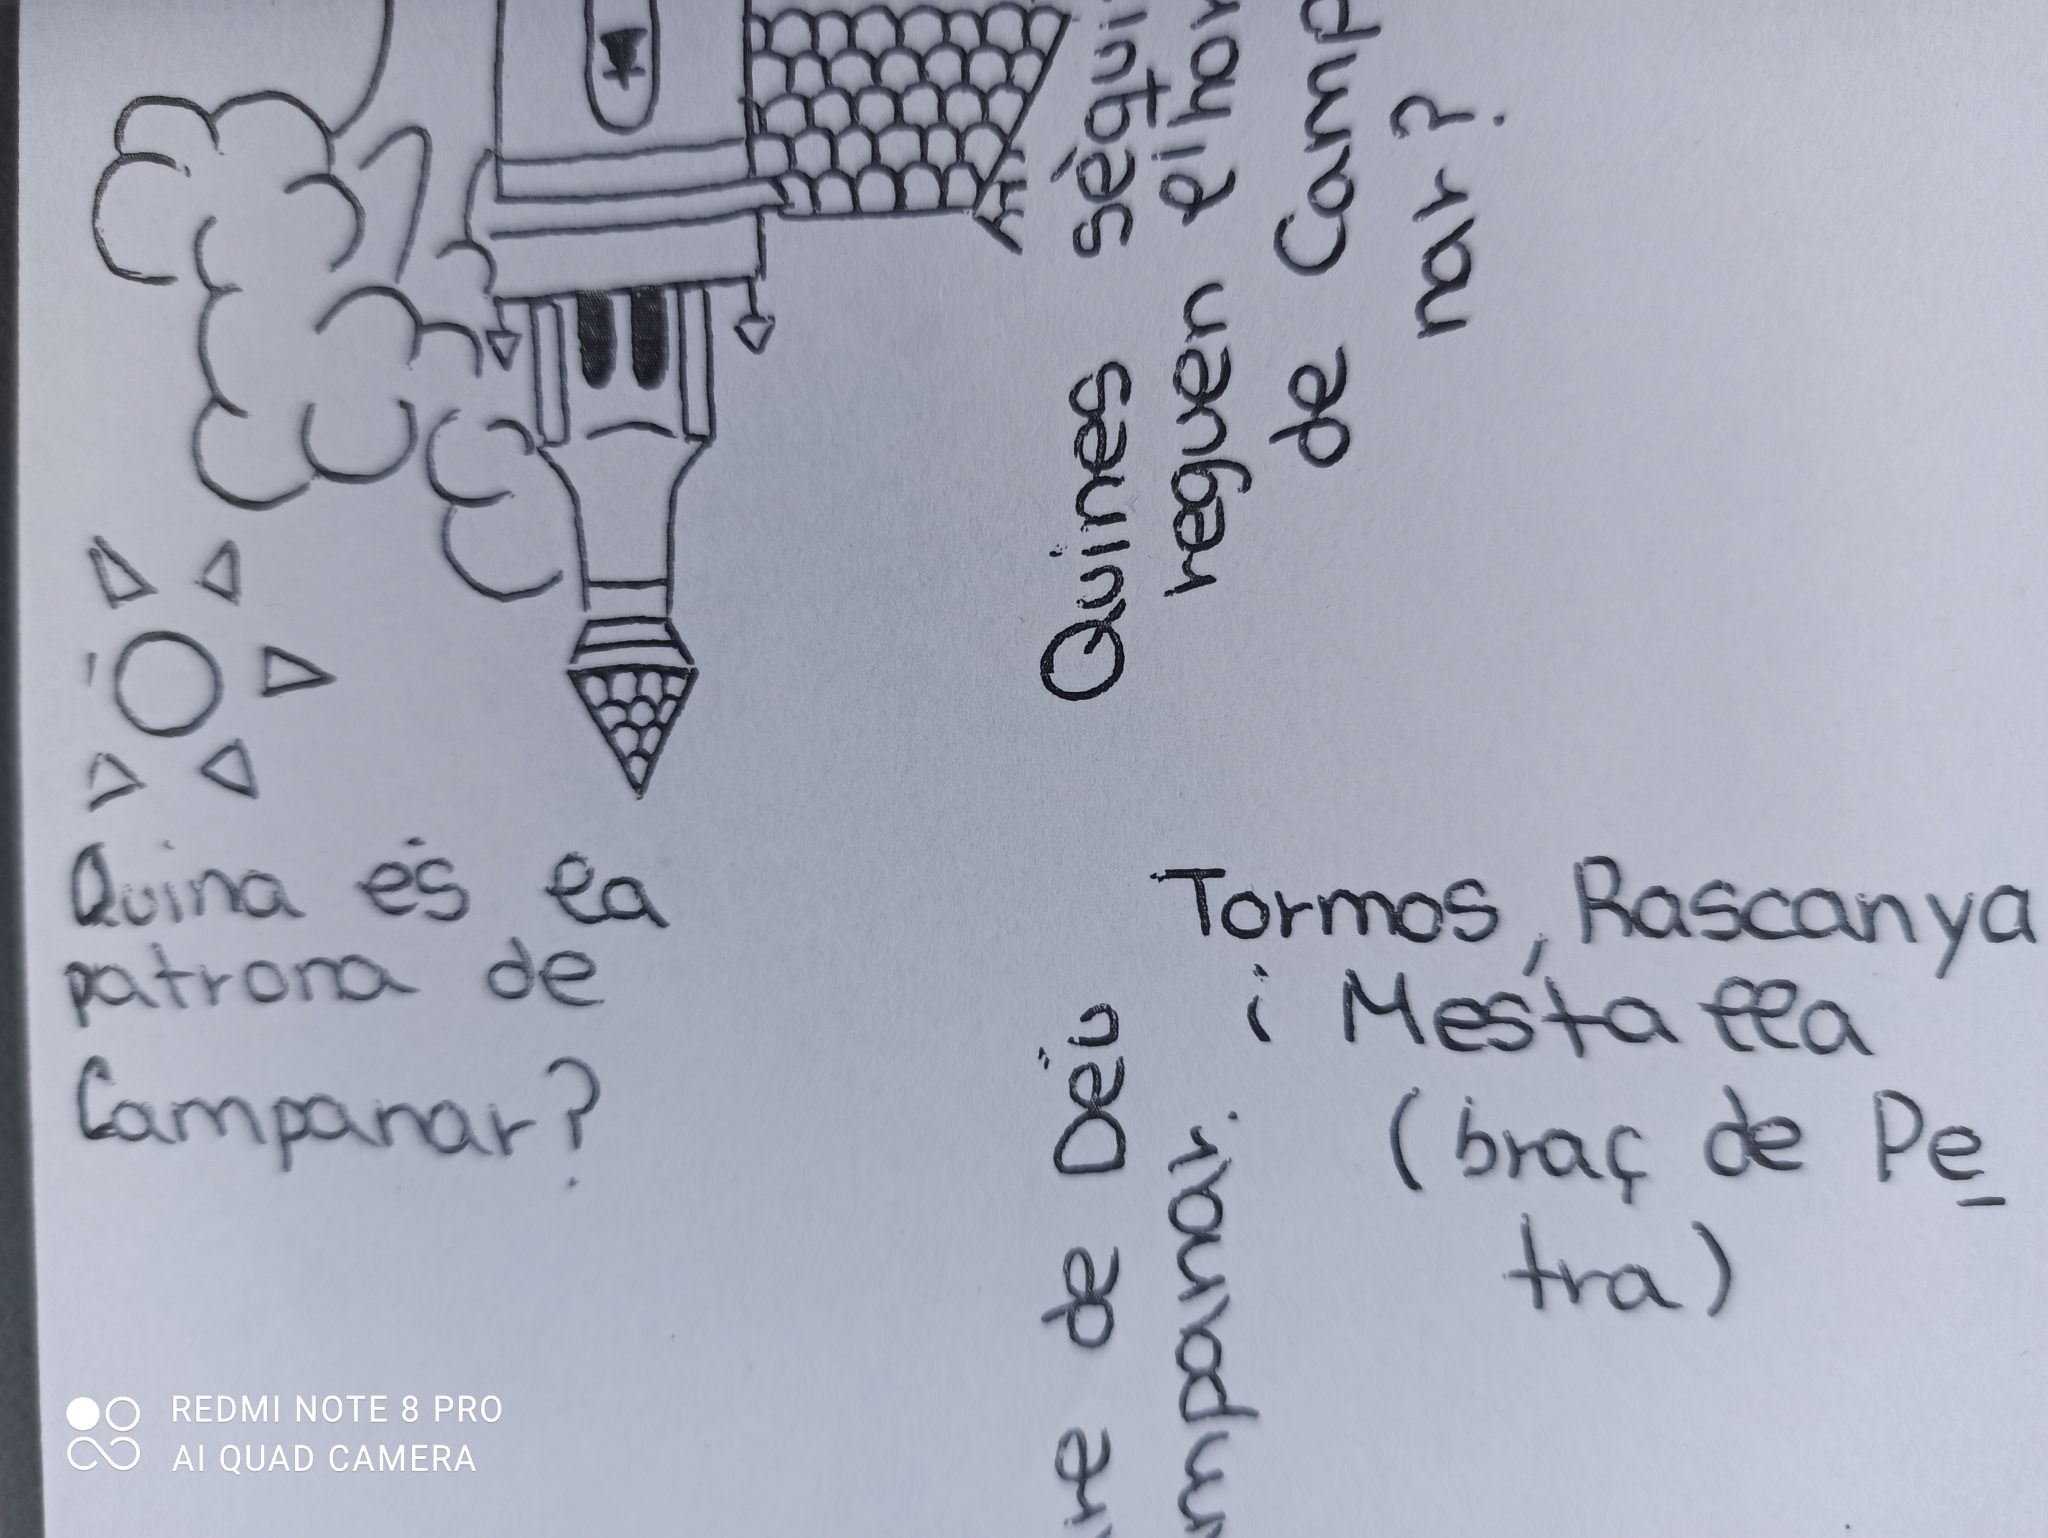 Quina és la
patrona de
Campanar?
Quines séqui
reguen l'hor
de Camp
nar?
Tormos, Rascanya
i Mestalla
(braç de Pe
tra)
re de Déu
mpanar.
REDMI NOTE 8 PRO
AI QUAD CAMERA